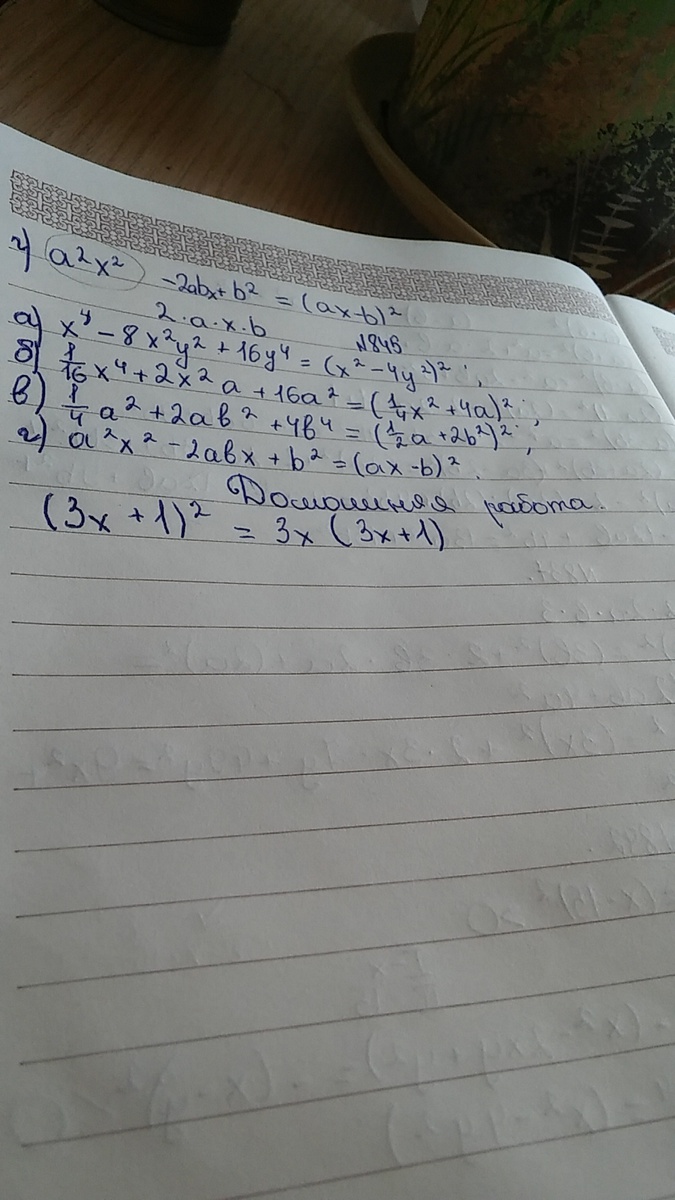 г) a²x² -2abx + b² = (ax-b)²
2·a·x·b
№846
а) x⁴ - 8x²y² + 16y⁴ = (x² - 4y²)²;
б) 1/16 x⁴ + 2x²a + 16a² = (1/4 x² + 4a)²;
в) 1/4 a² + 2ab² + 4b⁴ = (1/2 a + 2b²)²;
г) a²x² - 2abx + b² = (ax - b)².
Домашняя работа.
(3x + 1)² = 3x (3x+1)